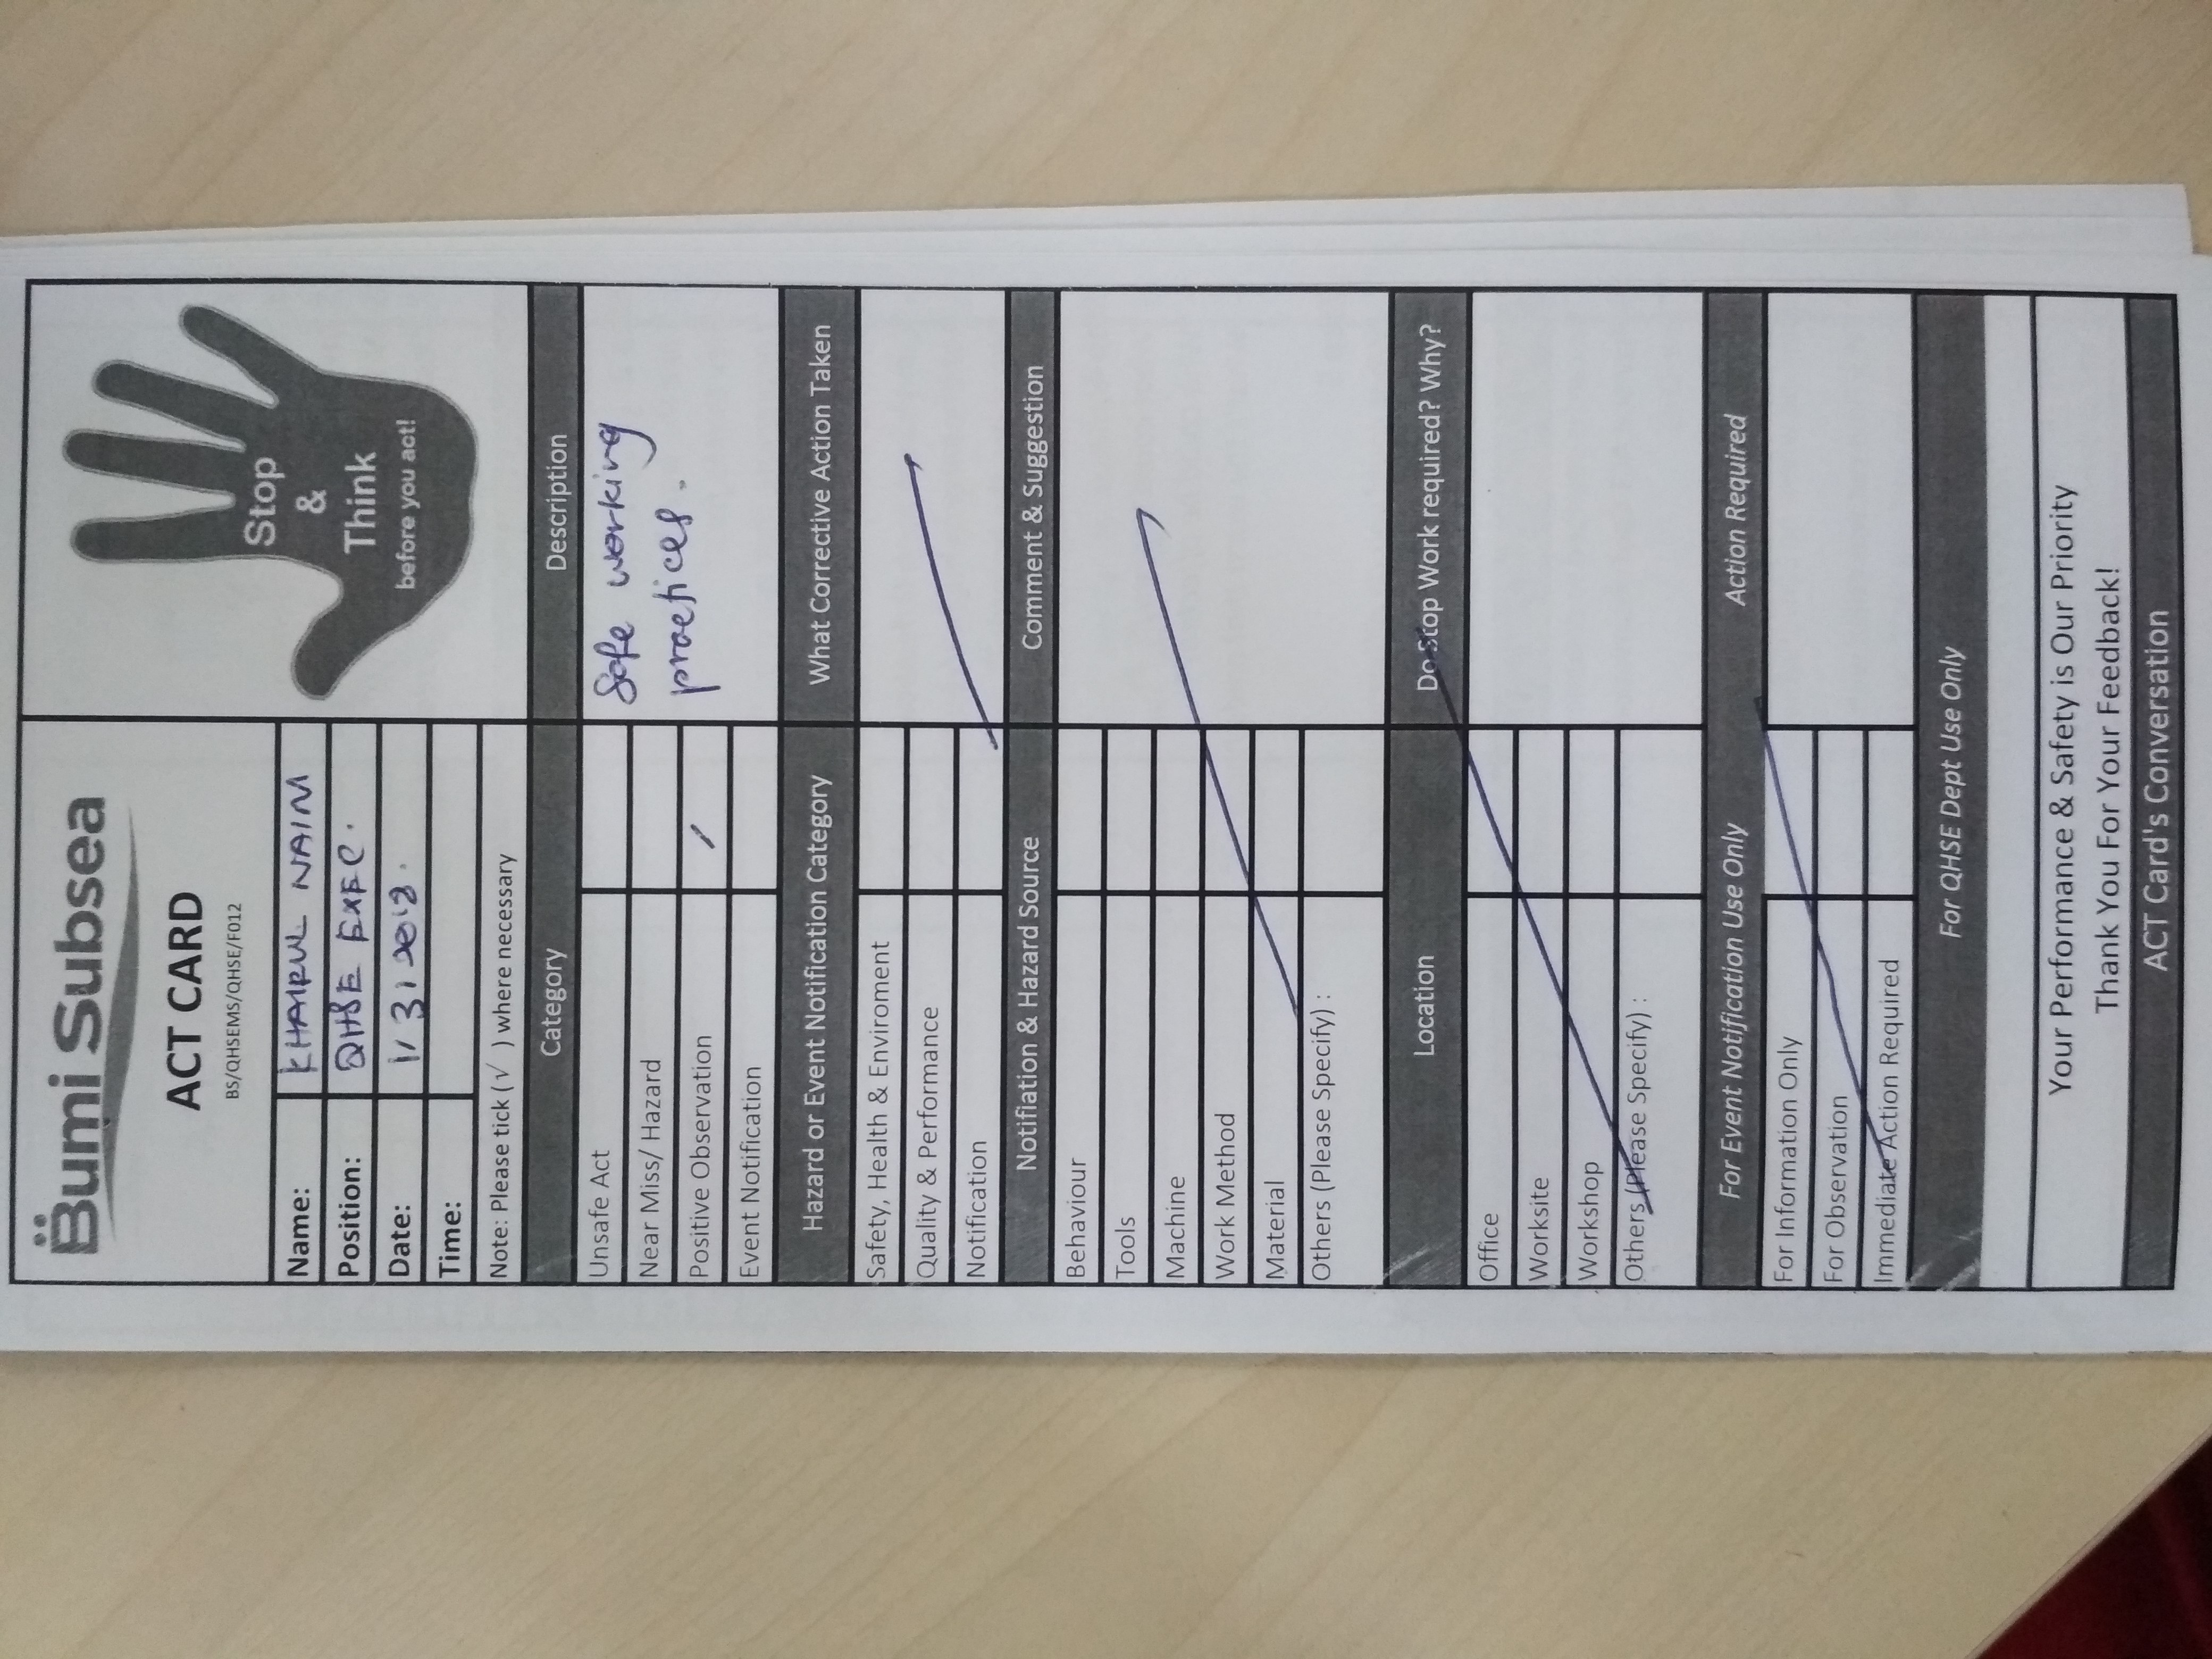 Bumi Subsea
ACT CARD
BS/QHSEMS/QHSE/F012
Stop
&
Think
before you act!
Name: KHAIRUL NAIM
Position: QHSE EXEC.
Date:
Time:
Note: Please tick (√ ) where necessary
Category Description
Unsafe Act
Near Miss/ Hazard
Positive Observation /
Event Notification
Safe working
practices.
Hazard or Event Notification Category What Corrective Action Taken
Safety, Health & Enviroment
Quality & Performance
Notification
Notifiation & Hazard Source Comment & Suggestion
Behaviour
Tools
Machine
Work Method
Material
Others (Please Specify) :
Location Do Stop Work required? Why?
Office
Worksite
Workshop
Others (Please Specify) :
For Event Notification Use Only Action Required
For Information Only
For Observation
Immediate Action Required
For QHSE Dept Use Only
Your Performance & Safety is Our Priority
Thank You For Your Feedback!
ACT Card's Conversation